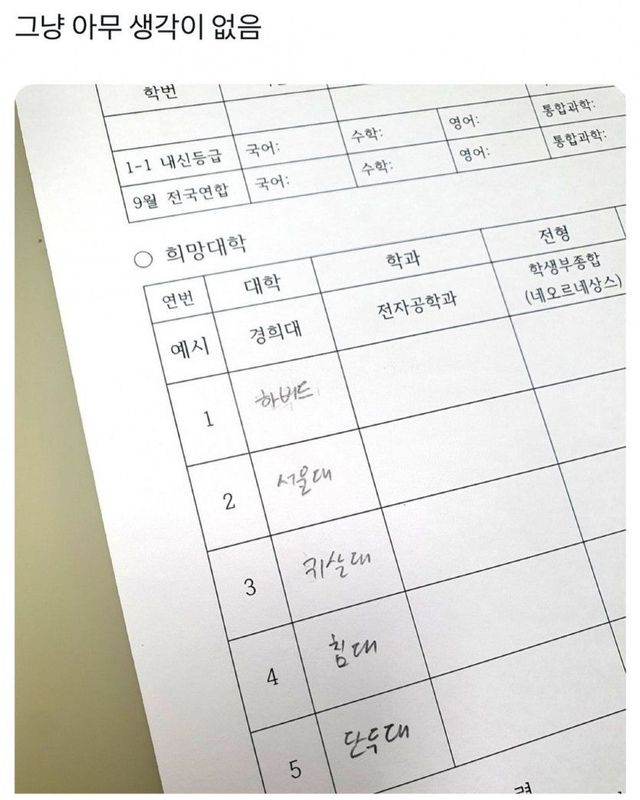 그냥 아무 생각이 없음
학번
1-1 내신등급 국어: 수학: 영어: 통합과학:
9월 전국연합 국어: 수학: 영어: 통합과학:
○ 희망대학
연번 대학 학과 전형
예시 경희대 전자공학과 학생부종합
(네오르네상스)
1 하버드
2 서울대
3 귀살대
4 침대
5 단두대